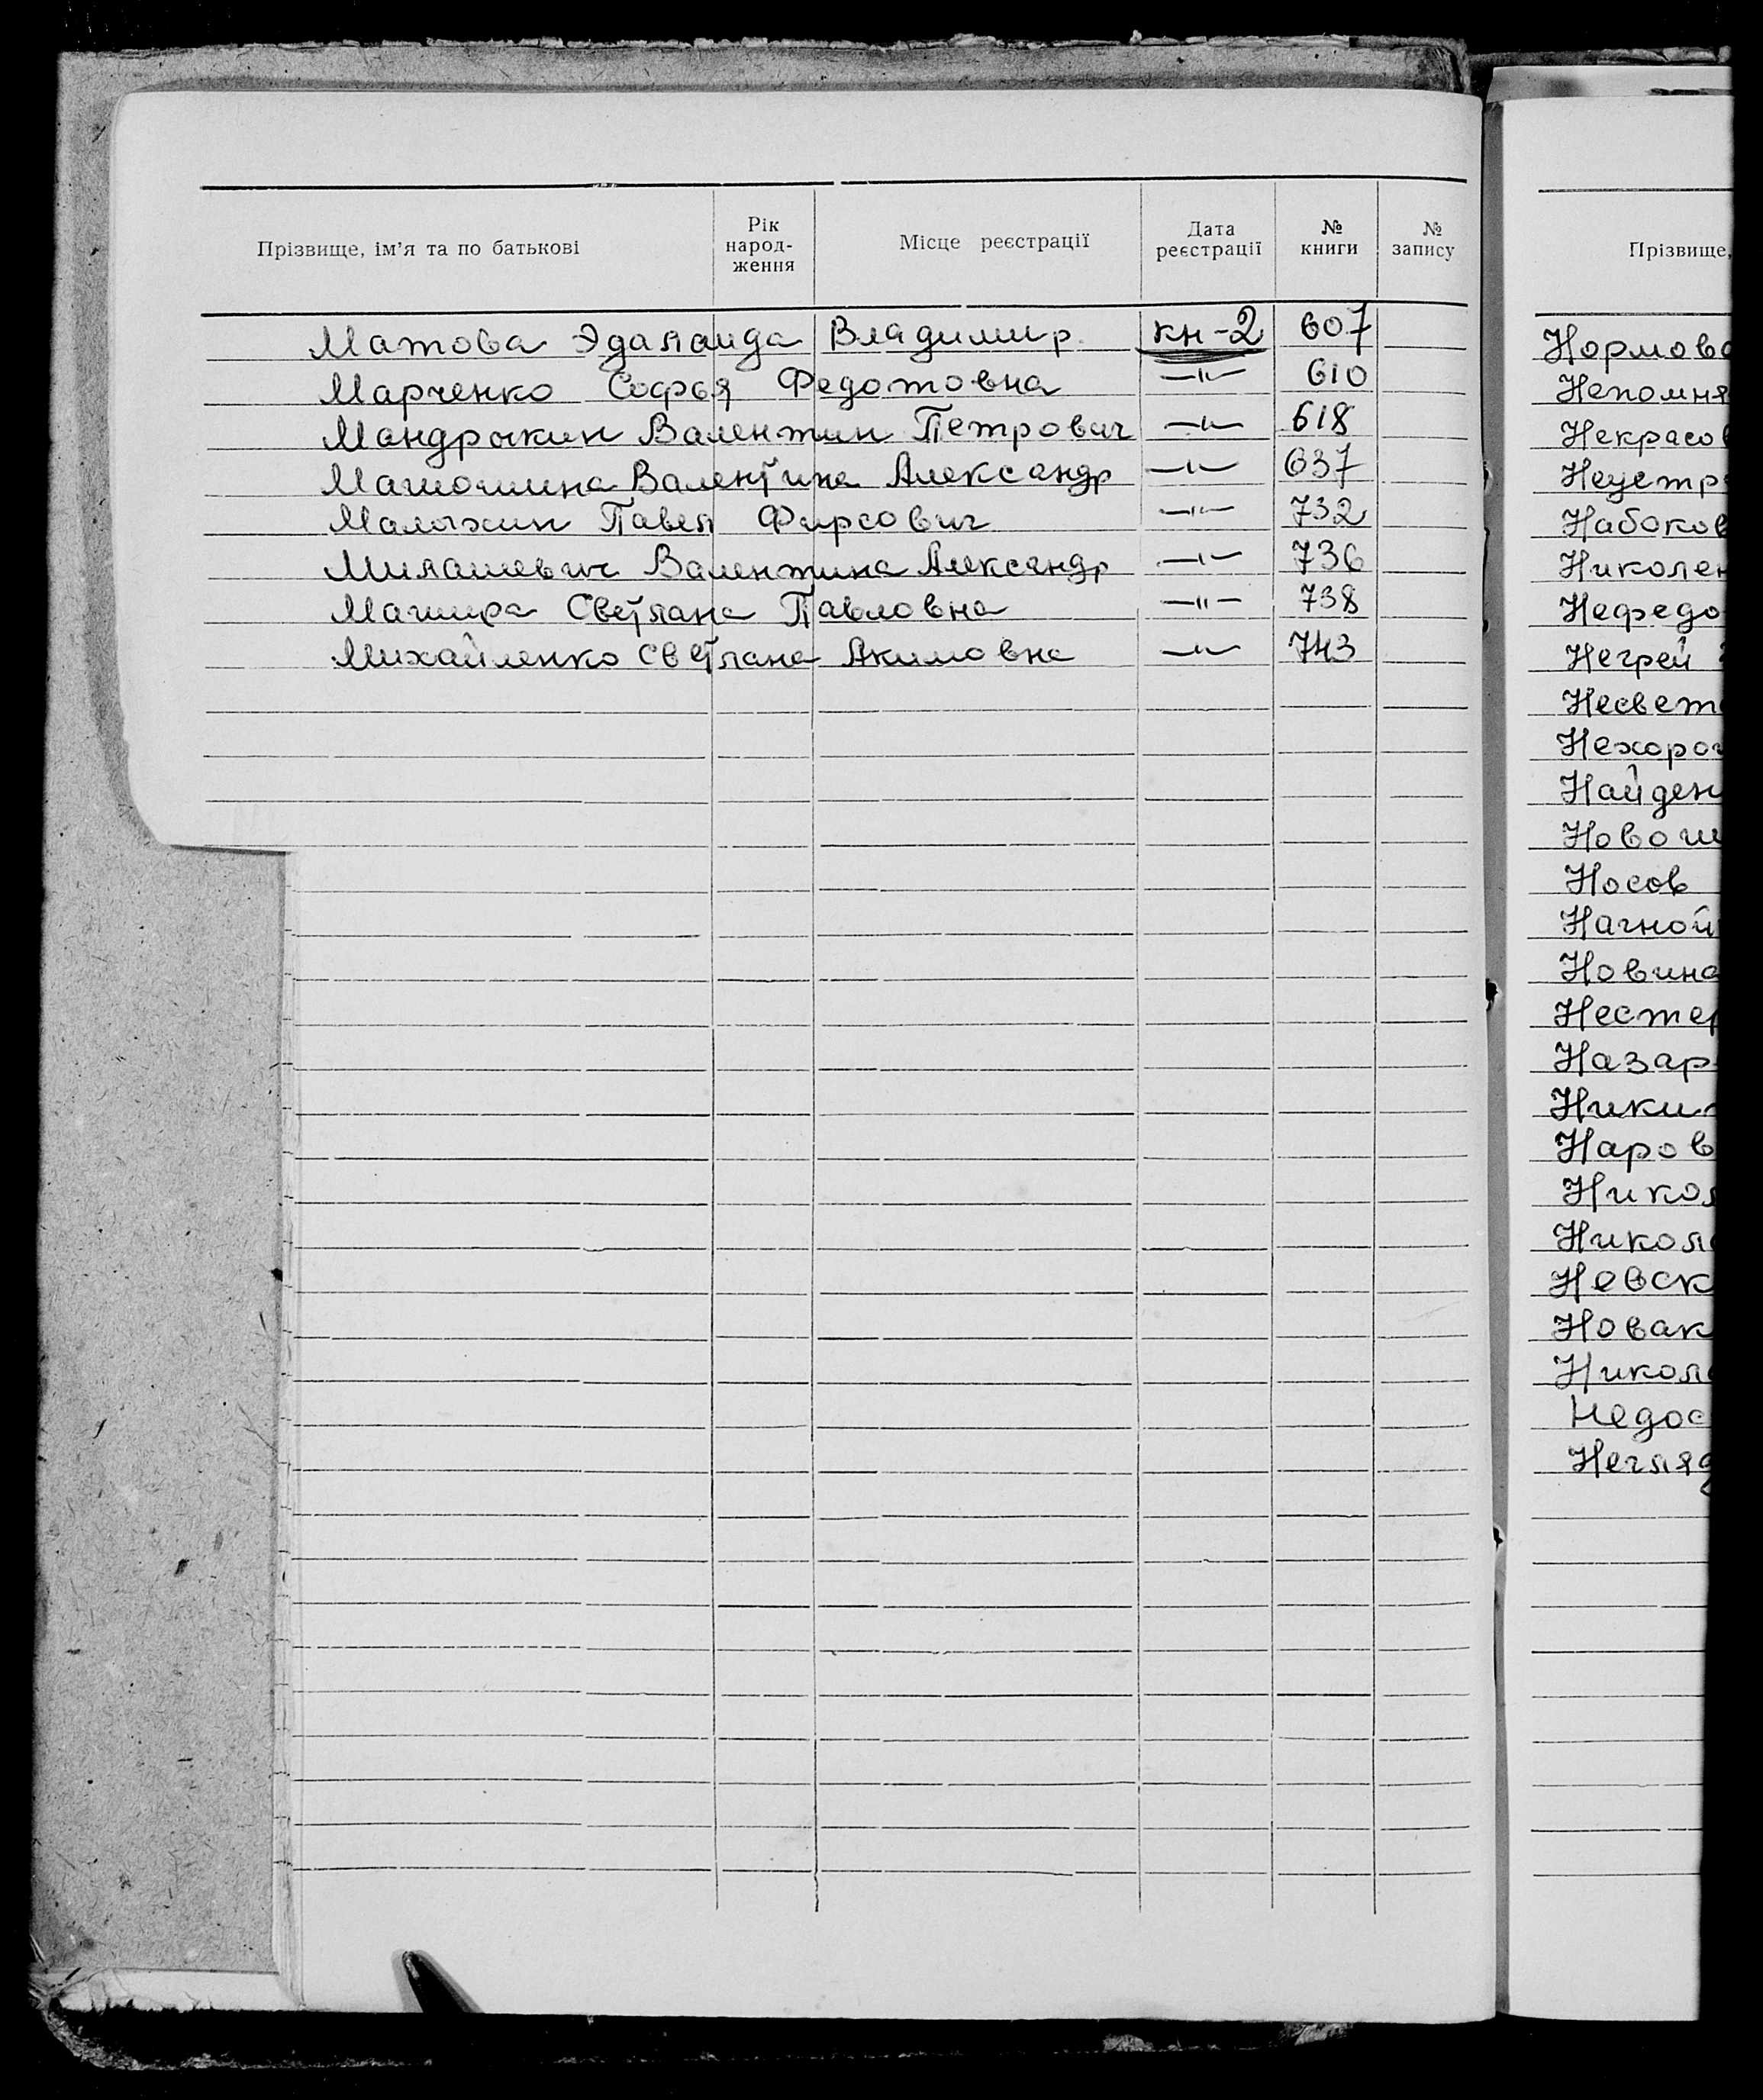 Прізвище, ім'я та по батькові Рік народ- ження Місце реєстрації Дата реєстрації № книги № запису
Матова Эдалаида Владимир. кн-2 607
Марченко Софья Федотовна —"— 610
Мандрыкин Валентин Петрович —"— 618
Матюшина Валентина Александр —"— 637
Малыхин Павел Фирсович —"— 732
Милашевич Валентина Александр —"— 736
Мачихра Светлана Павловна —"— 738
Михайленко Светлана Акимовна —"— 743
Прізвище,
Нормова
Непомня
Некрасов
Неустр
Набоков
Николен
Нефедо
Негрей
Несвет
Нехорог
Найден
Новош
Носов
Нагной
Новина
Нестер
Назар
Ники
Наров
Никол
Никола
Невск
Новак
Никола
Недос
Негляд